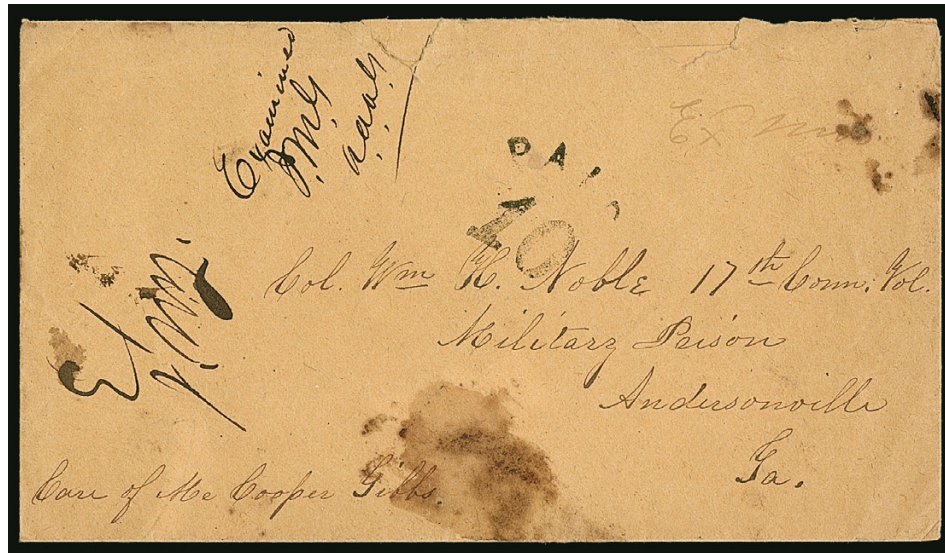 Examined
P.M.G.
a.a.a.G.
Ex
PAI
10
Ex
P.M.
Col. Wm H. Noble 17th Conn. Vol.
Military Prison
Andersonville
Ga.
Care of Mc Cooper Gibbs.